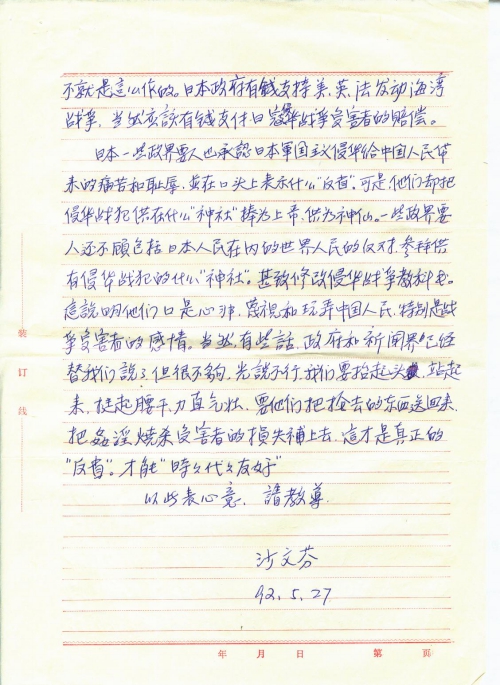 不就是這么作的。日本政府有錢支持美、英、法发动海湾
战爭，当然应該有錢支付日寇侵华战爭受害者的赔偿。
日本一些政界要人也承認日本軍国主义侵华给中国人民带
来的痛苦和耻辱，並在口头上表示什么“反省”，可是他们却把
侵华战犯供在什么“神社”捧为上帝，供为神仙。一些政界要
人还不顾包括日本人民在内的世界人民的反对，参拜供
有侵华战犯的什么“神社”。甚致修改侵华战爭教科书。
這說明他们口是心非，蔑视和玩弄中国人民，特别是战
爭受害者的感情。当然，有些話，政府和新闻界已经
替我们說了，但很不夠，光談不行，我们要抬起头，站起
来，挺起腰干，力直气壮，要他们把搶去的东西送回来，
把姦淫燒杀受害者的損失補上去，這才是真正的
“反省”。才能“時々代々友好”
以此表心意，請教導
沙文芬
92.5.27
装
订
线
年 月 日 第 页